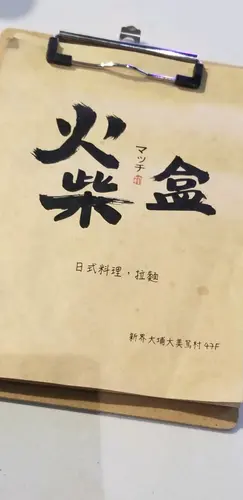 火柴盒
マッチ
日式料理，拉麵
新界大埔大美篤村47F